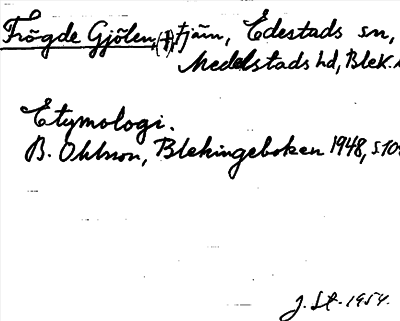 Frögde Gjölen, (†), tjärn, Edestads sn,
Medelstads hd, Blek.
Etymologi.
B. Ohlsson, Blekingeboken 1948, s.10
J. St. 1954.